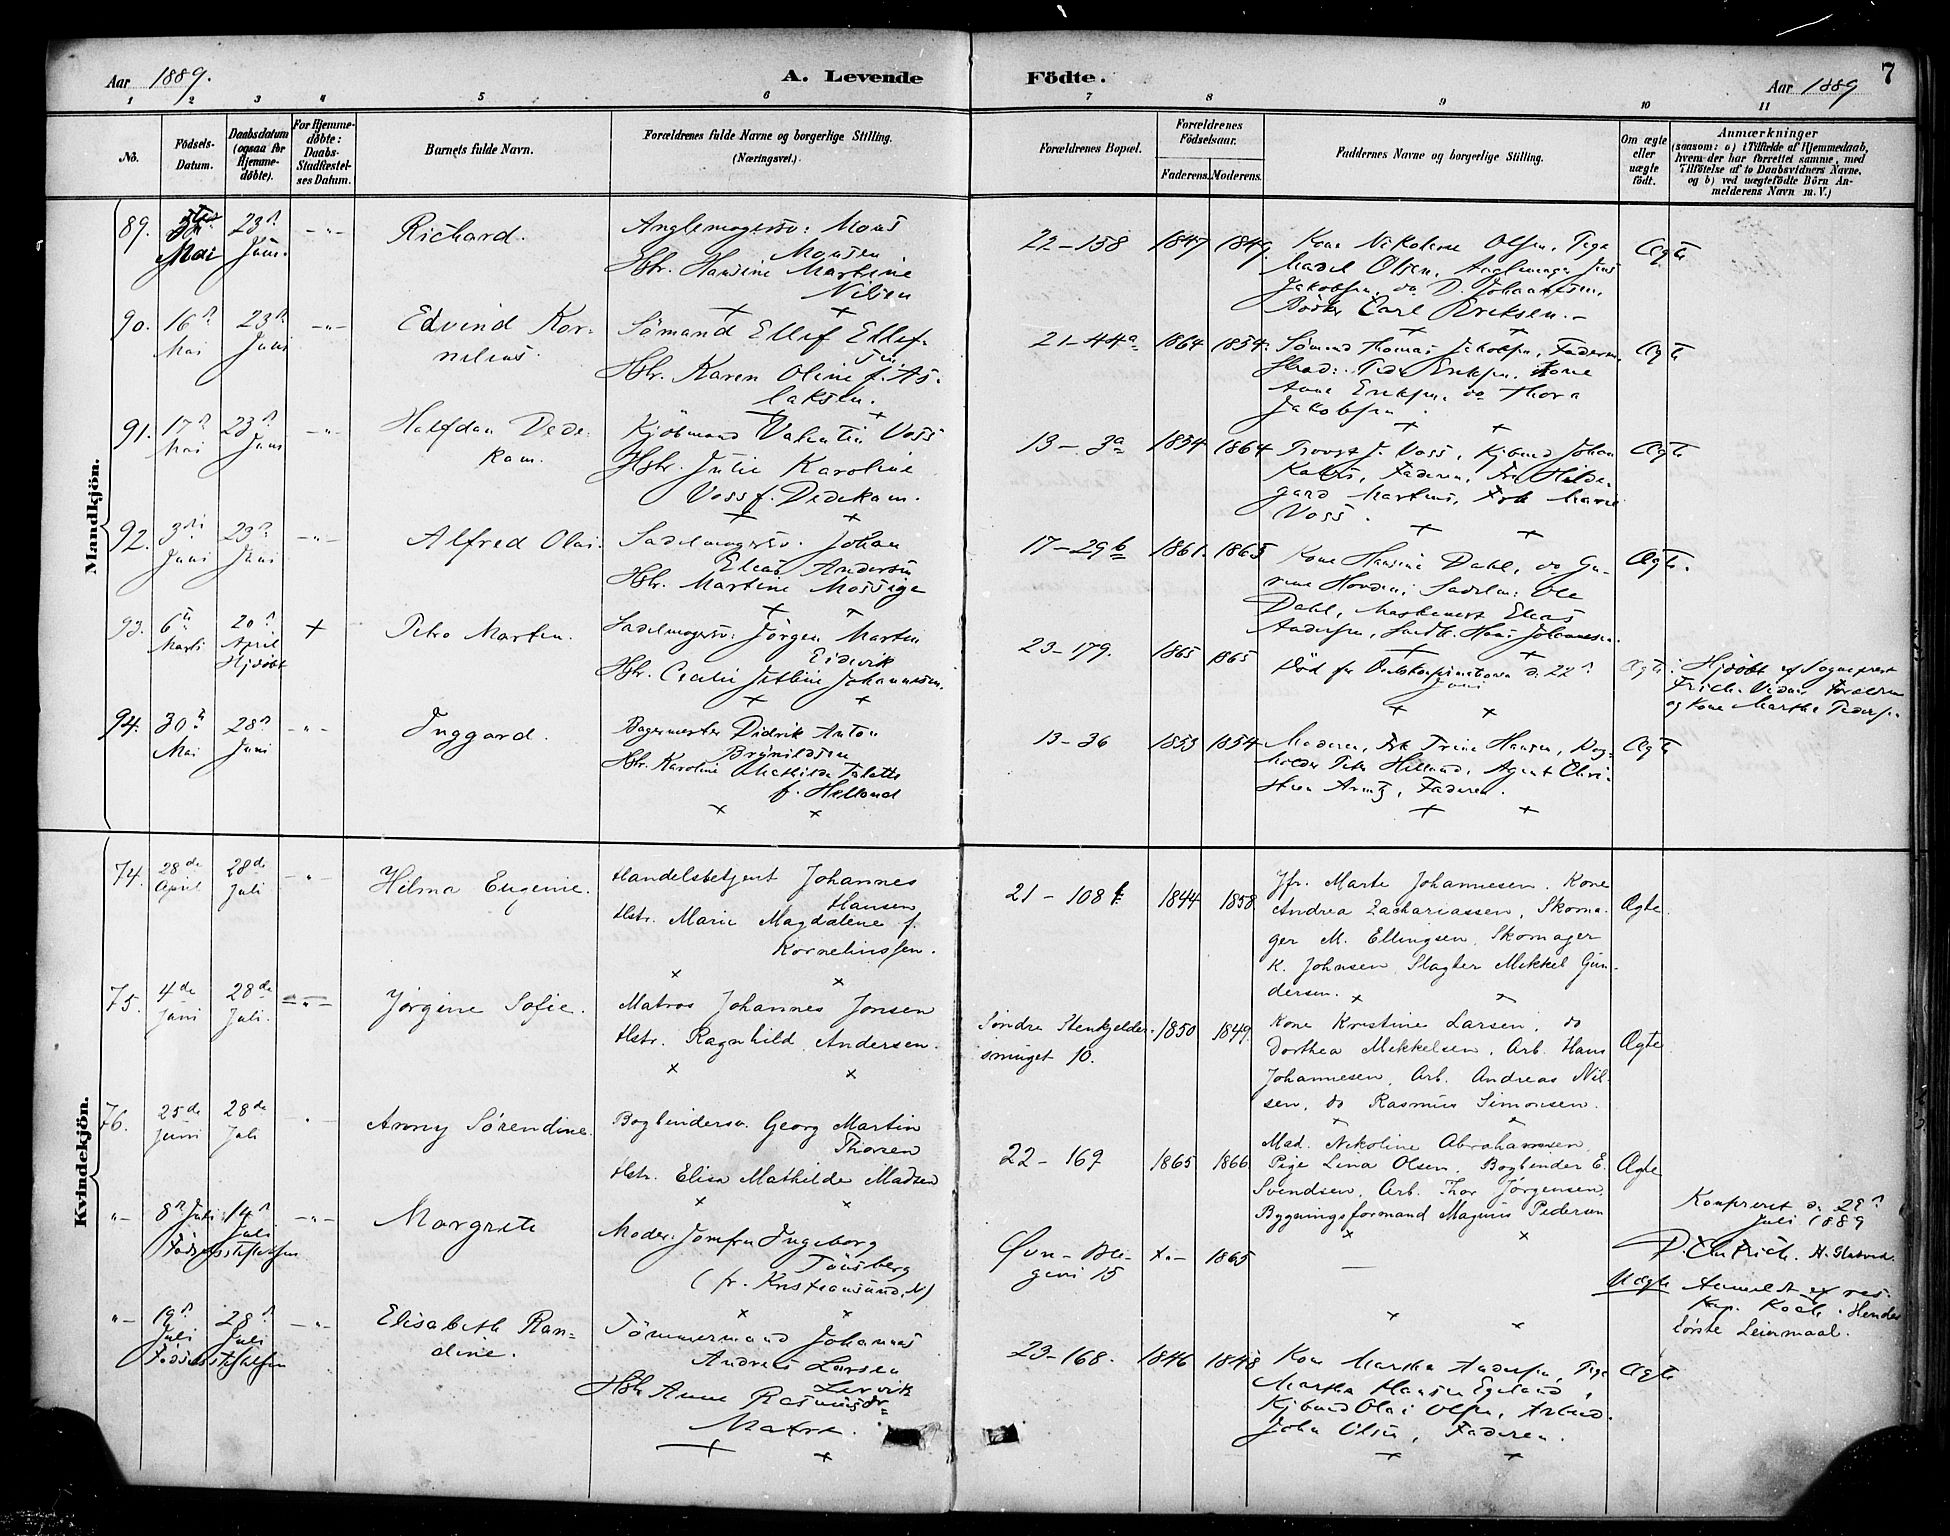 Aar 1889.
A. Levende Födte.
Aar 1889
7
1 2 3 4 5 6 7 8 9 10 11
No.
Födsels-
Datum.
Daabsdatum
(ogsaa for
Hjemme-
döbte).
For Hjemme-
döbte:
Daabs-
Stadfæstel-
ses Datum.
Barnets fulde Navn.
Forældrenes fulde Navne og borgerlige Stilling.
(Næringsvei.)
Forældrenes Bopæl.
Forældrenes
Födselsaar.
Faderens. Moderens.
Faddernes Navne og borgerlige Stilling.
Om ægte
eller
uægte
födt.
Anmærkninger
(saasom: a) i Tilfælde af Hjemmedaab,
hvem der har forrettet samme, med
Tilföielse af to Daabsvidners Navne,
og b) ved uægtefödte Börn An-
melderens Navn m. V.)
Mandkjön.
89.
Mai
23
Juni.
Richard.
Mons
Monsen
Hstr. Hansine Martine
Nilsen
22-158
1847
1849.
Kone Nikoline Olsen, Pige
Olsen,
Jakobsen, do D. Johannesen,
Carl Eriksen.-
Ægte
90.
16
Mai
23
Juni
Edvind Kor-
nelius.
Sömand Ellef Ellef-
sen
Hstr. Karen Oline f. As-
laksen.
21-44a
1864
1854.
Sömand Thomas Jakobsen, Faderen,
Eriksen, Kone
Anne Eriksen, do Thora
Jakobsen
Ægte
91.
17
Mai
23
Juni
Halfdan Dede-
kam.
Kjöbmand Valentin Voss
Hstr. Julie Karoline
Voss f. Dedekam.
13-3a
1834
1864
Provst J. Voss, Kjbmd Johan
Faderen, Fru Hilde-
gard Martens, Frk Marie
Voss.
Ægte
92.
3
Juni
23
Juni
Alfred Olai.
Sadelmagersv. Johan
Elias Andersen
Hstr. Martine Mossige
17-29b
1861.
1865
Kone Hansine Dahl, do Gu-
rine Sadelm: Ole
Dahl, Elias
Andersen, Hans Johannesen
Ægte.
93.
6
Marts
20
April
Hjdöbt
+
Petro Marten.
Sadelmagersv: Jörgen Marten
Eidevik
Hstr. Cecilie Johannesen.
23-179.
1865
1865
Död d. 22
Juni
Ægte
Hjdöbt af Sogneprest
Forældrene
og Kone Martha
94.
30
Mai
28
Juni
Inggard.
Bagermester Didrik Anton
Brynildsen
Hstr. Karoline Mathilde Talette
f. Helland
13-36
1853
1854
Moderen, Frk Trine Hansen, Bog-
holder Peter Helland, Agent Chri-
Faderen.
Ægte
Kvindekjön.
74.
28de
April
28de
Juli
Hilma Eugenie.
Handelsbetjent Johannes
Hansen
Hstr. Marie Magdalene f.
Korneliussen.
21-108
1844
1858
Jfr. Marte Johannesen. Kone
Andrea Zachariassen, Skoma-
ger M. Ellingsen, Skomager
K. Johnsen, Slagter Mikkel Gun-
dersen.
Ægte.
75.
4de
Juni
28de
Juli.
Jörgine Sofie.
Matros Johannes Jonsen
Hstr. Ragnhild Andersen.
Söndre Stenkjelder-
smuget 10.
1850
1849.
Kone Kristine Larsen, do
Dorthea Mikkelsen, Arb. Hans
Johannesen, Arb. Andreas Nil-
sen, do Rasmus Simonsen.
Ægte
76.
25de
Juni
28de
Juli
Anny Sörendine.
Bogbindersv. Georg Martin
Thorsen
Hstr. Elisa Mathilde Madsen
22-167
1865
1866
Mad. Nikoline Abrahamsen,
Pige Lina Olsen, Bogbinder E.
Svendsen, Arb. Thor Jörgensen,
Bygningsformand Magnus Pedersen
Ægte
8 Juli
14
Juli
Födselsstiftelsen
Margrete
Moder: Jomfru Ingeborg
Tönsberg
(fr. Kristiansund. N)
15
1865
Uægte
Konfereret d. 29
Juli 1889
Anmeldt af res.
Kap. Koch. Hendes
förste Leiermaal.
19
Juli
28
Juli
Födselsstiftelsen
Elisabeth Ran-
dine.
Tömmermand Johannes
Andreas Larsen
Lervik
Hstr Anne Rasmusdr
Matre.
23-168.
1846
1848
Kone Martha Andersen, Pige
Martha Hansen Egeland,
Kjbmd Olai Olsen, Arbmd.
John Olsen, Faderen.
Ægte